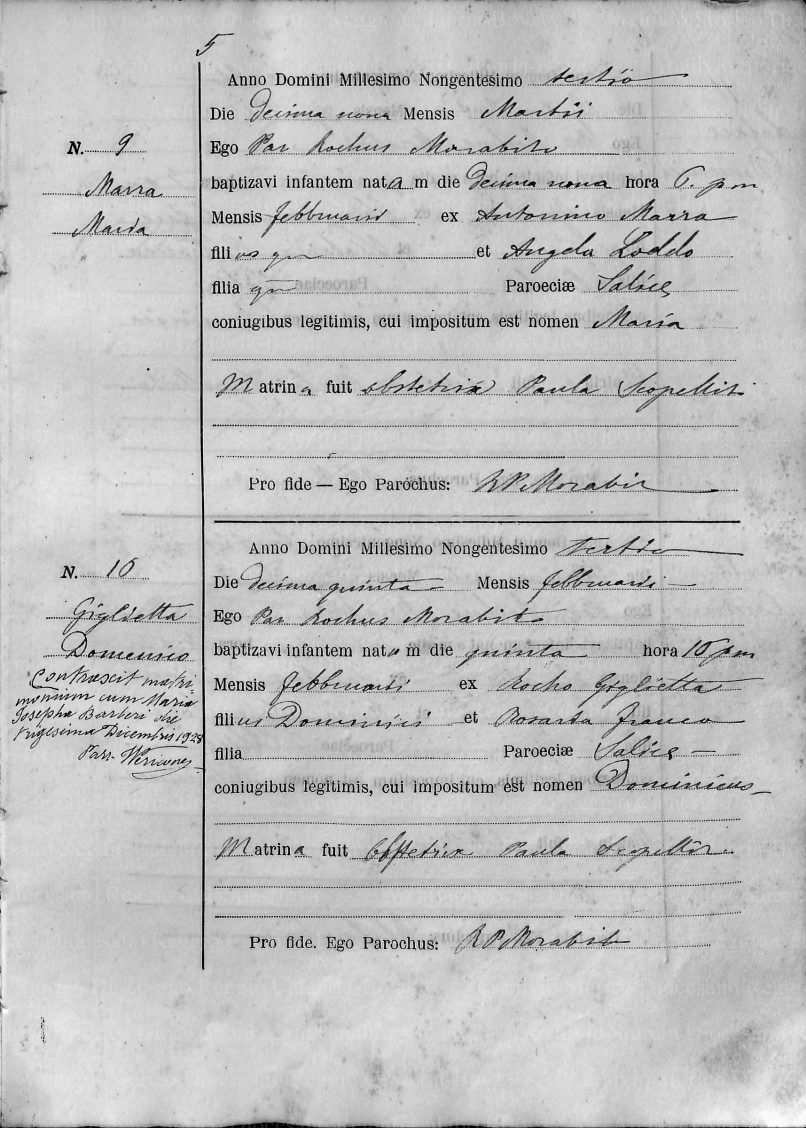 5
Anno Domini Millesimo Nongentesimo tertio
Die decima nona Mensis Martii
N. 9
Ego Par Rochus Morabito
Marra
baptizavi infantem natam die decima nona hora 6. pm
Maria
Mensis febbruarii ex Antonino Marra
filius qm et Angela Loddo
filia qm Paroeciæ Salice
coniugibus legitimis, cui impositum est nomen Maria
Matrina fuit obstetrix Paula Scopelliti
Pro fide — Ego Parochus: R P Morabito
Anno Domini Millesimo Nongentesimo tertio
N. 10
Die decima quinta Mensis febbruarii
Giglietta
Ego Par Rochus Morabito
Domenico
baptizavi infantem natum die quinta hora 10 pm
Contraxit matri
monium cum Maria
Josepha Barberi die
vigesima Decembris 1928
Pars.
Mensis febbruarii ex Rocho Giglietta
filius Dominici et Rosaria Franco
filia Paroeciæ Salice
coniugibus legitimis, cui impositum est nomen Dominicus
Matrina fuit Obstetrix Paula Scopelliti
Pro fide. Ego Parochus: R P Morabito